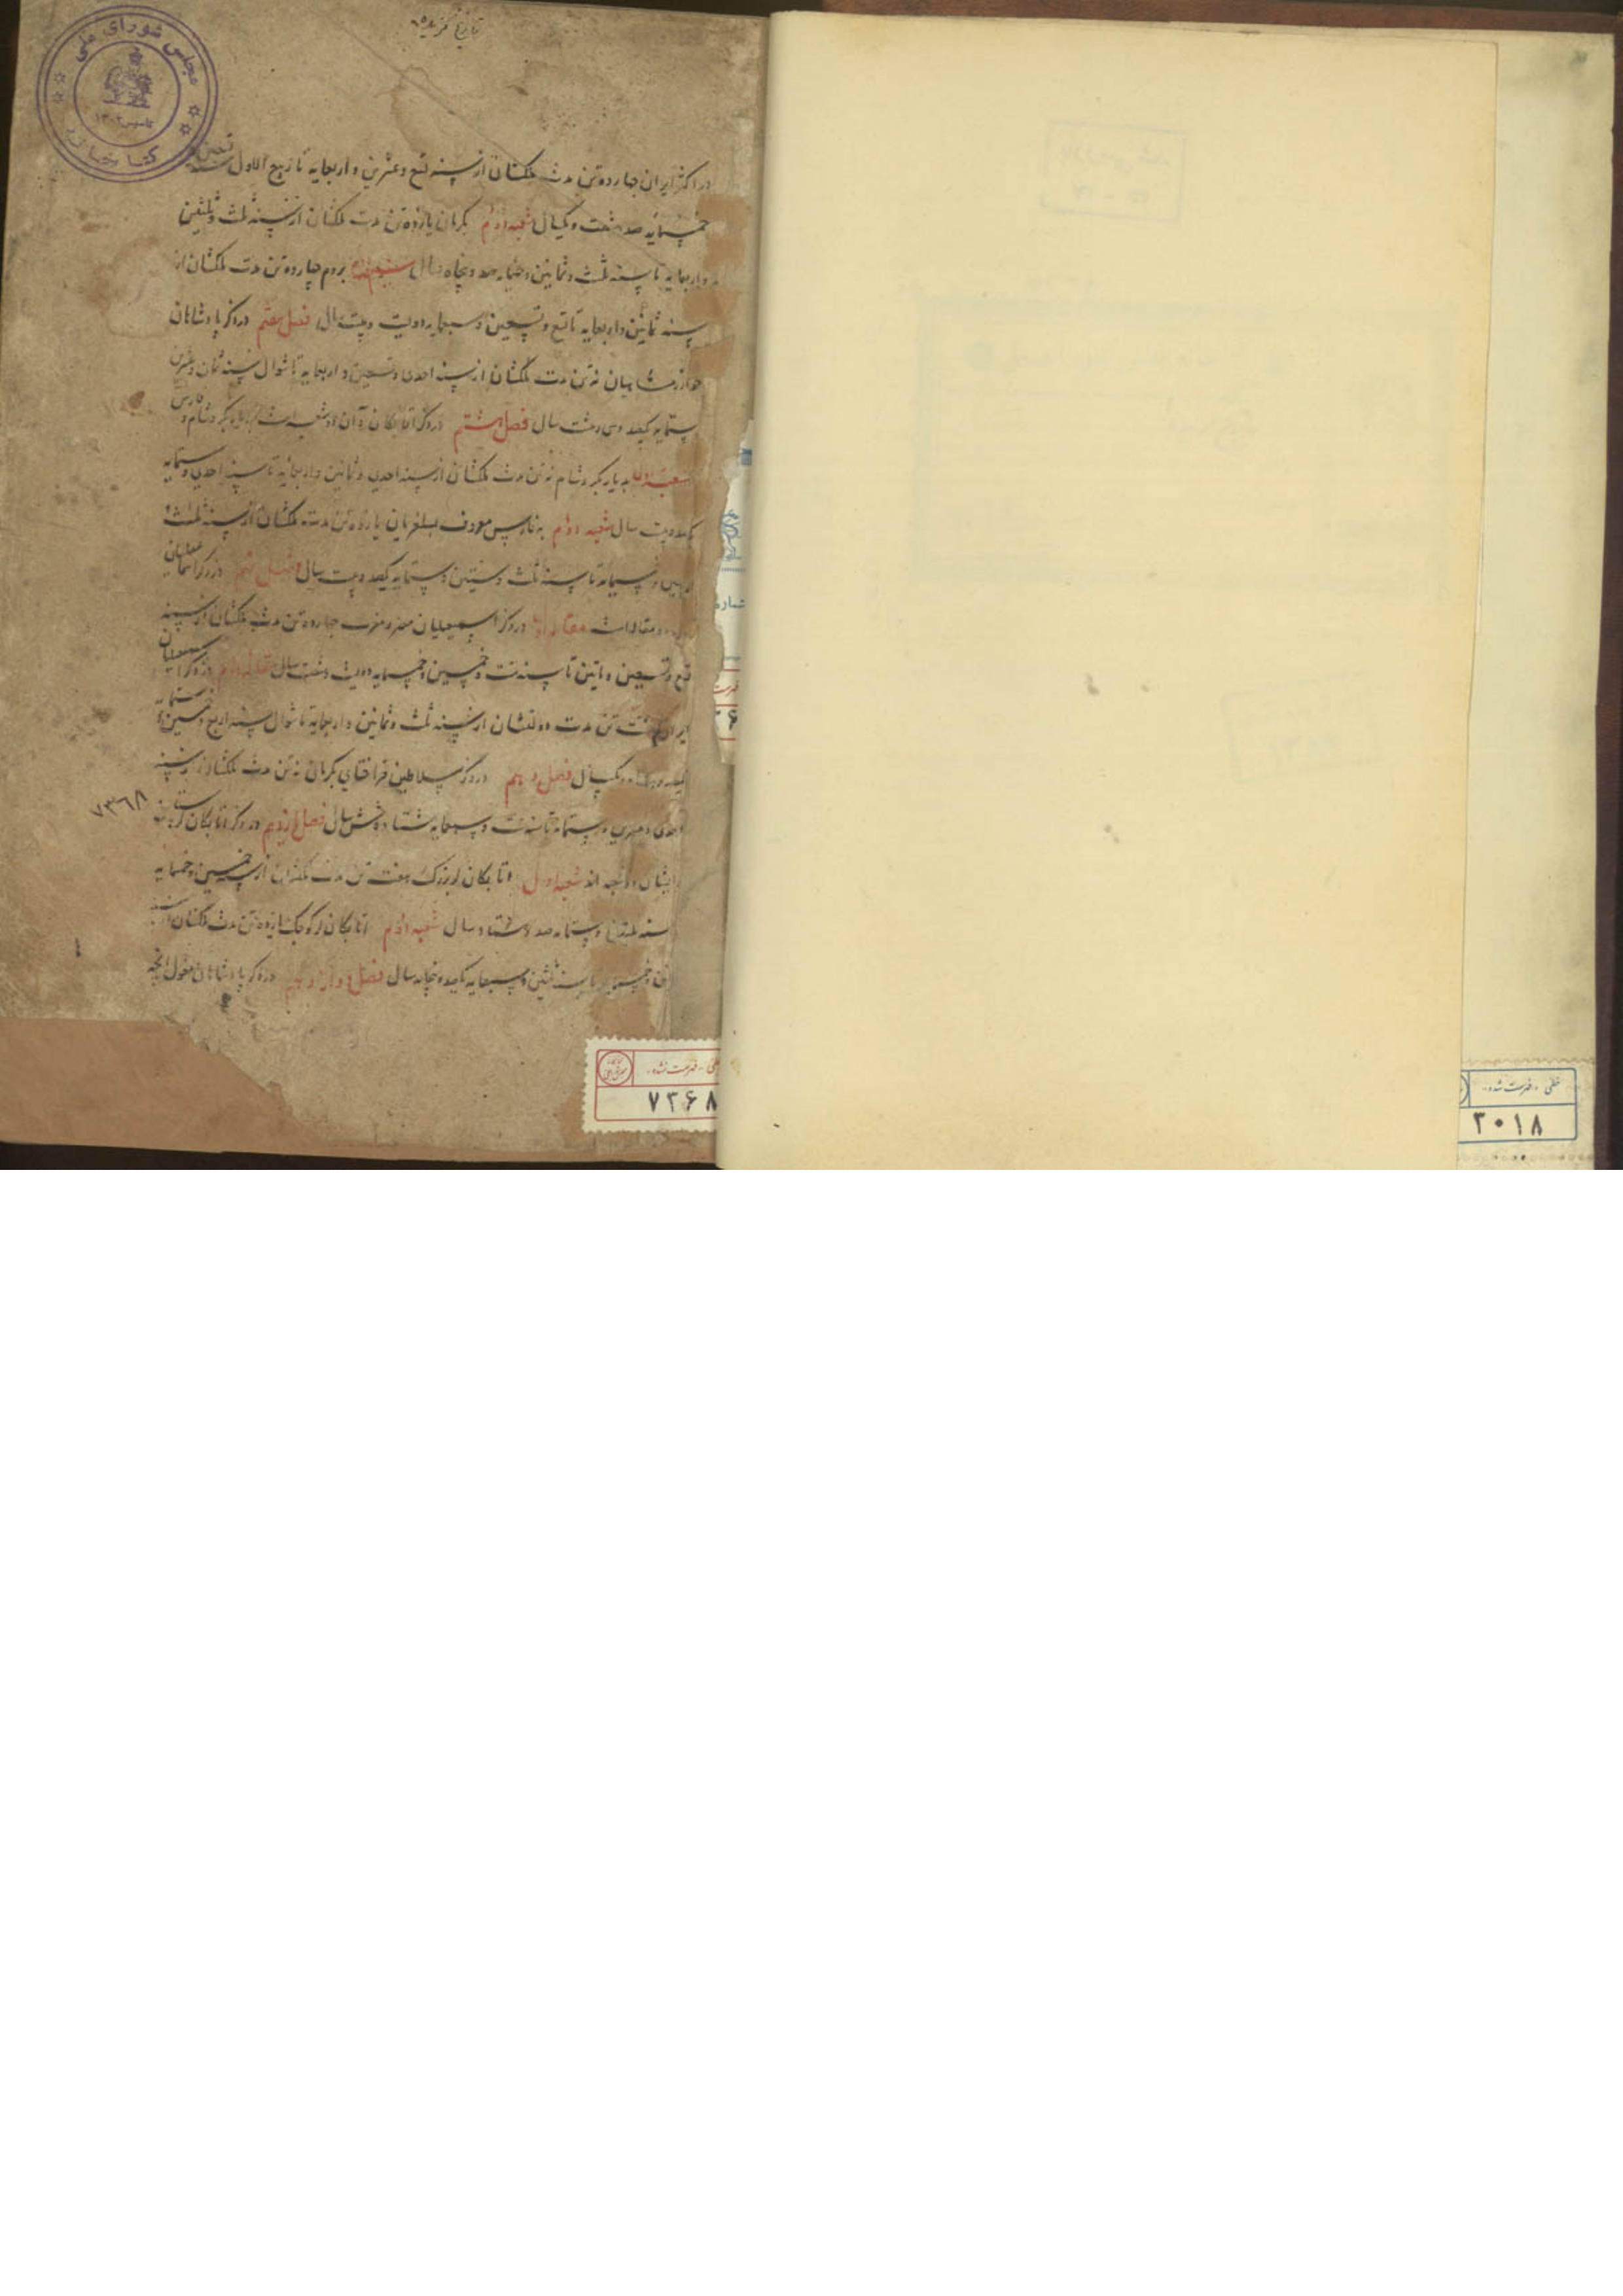 تاریخ گزیده
مجلس شورای ملی
تاسیس ۱۳۰۲
کتابخانه
در اکثر ایران چهارده تن مدت ملکشان از سنه تسع و عشرین و اربعمایه تا ربیع الاول سنه
خمسمایه صد و شصت و یکسال شعبه دوم بکرمان یازده تن مدت ملکشان از سنه ثلث و ثلثین
و اربعمایه تا سنه ثلث و ثمانین و خمسمایه صد و پنجاه سال بروم چهارده تن مدت ملکشان از
سنه ثمانین و اربعمایه تا تسع و تسعین و سبعمایه دویست و بیست سال فصل هفتم در ذکر پادشاهان
خوارزمشاهیان نه تن مدت ملکشان از سنه احدی و تسعین و اربعمایه تا شوال سنه ثمان و عشرین
ستمایه یکصد و سی و هشت سال فصل هشتم در ذکر اتابکان و آن دو شعبه است بدیار بکر و شام و فارس
شعبه اول بدیار بکر و شام نه تن مدت ملکشان از سنه احدی و ثمانین و اربعمایه تا سنه احدی و ستمایه
یکصد و بیست سال شعبه دوم بفارس معروف بسلغریان یازده تن مدت ملکشان از سنه ثلث و
اربعین و خمسمایه تا سنه ثلث و ستین و ستمایه یکصد و بیست سال فصل نهم در ذکر اسماعیلیان
و مقالات مقاله اول در ذکر اسمعیلیان مصر و مغرب چهارده تن مدت ملکشان از سنه
تسع و تسعین و ماتین تا سنه ست و خمسین و خمسمایه دویست و شصت سال مقاله دوم در ذکر اسمعیلیان
ایران هشت تن مدت دولتشان از سنه ثلث و ثمانین و اربعمایه تا شوال سنه اربع و خمسین و ستمایه
یکصد و هفتاد و یکسال فصل دهم در ذکر سلاطین قراختای بکرمان نه تن مدت ملکشان از سنه
احدی و عشرین و ستمایه تا سنه ست و سبعمایه هشتاد و شش سال فصل یازدهم در ذکر اتابکان
۷۳۶۸
شعبه اول اتابکان لر بزرک هفت تن مدت ملکشان از خمسین و خمسمایه
سنه ثلثین و سبعمایه صد و هشتاد سال شعبه دوم اتابکان لر کوچک یازده تن مدت ملکشان از سنه
ثمانین و خمسمایه تا سنه ثلثین و سبعمایه یکصد و پنجاه سال فصل دوازدهم در ذکر پادشاهان مغول انچه
خطی - فهرست نشده -
۷۳۶۸
شماره
خطی - فهرست شده -
۲۰۱۸